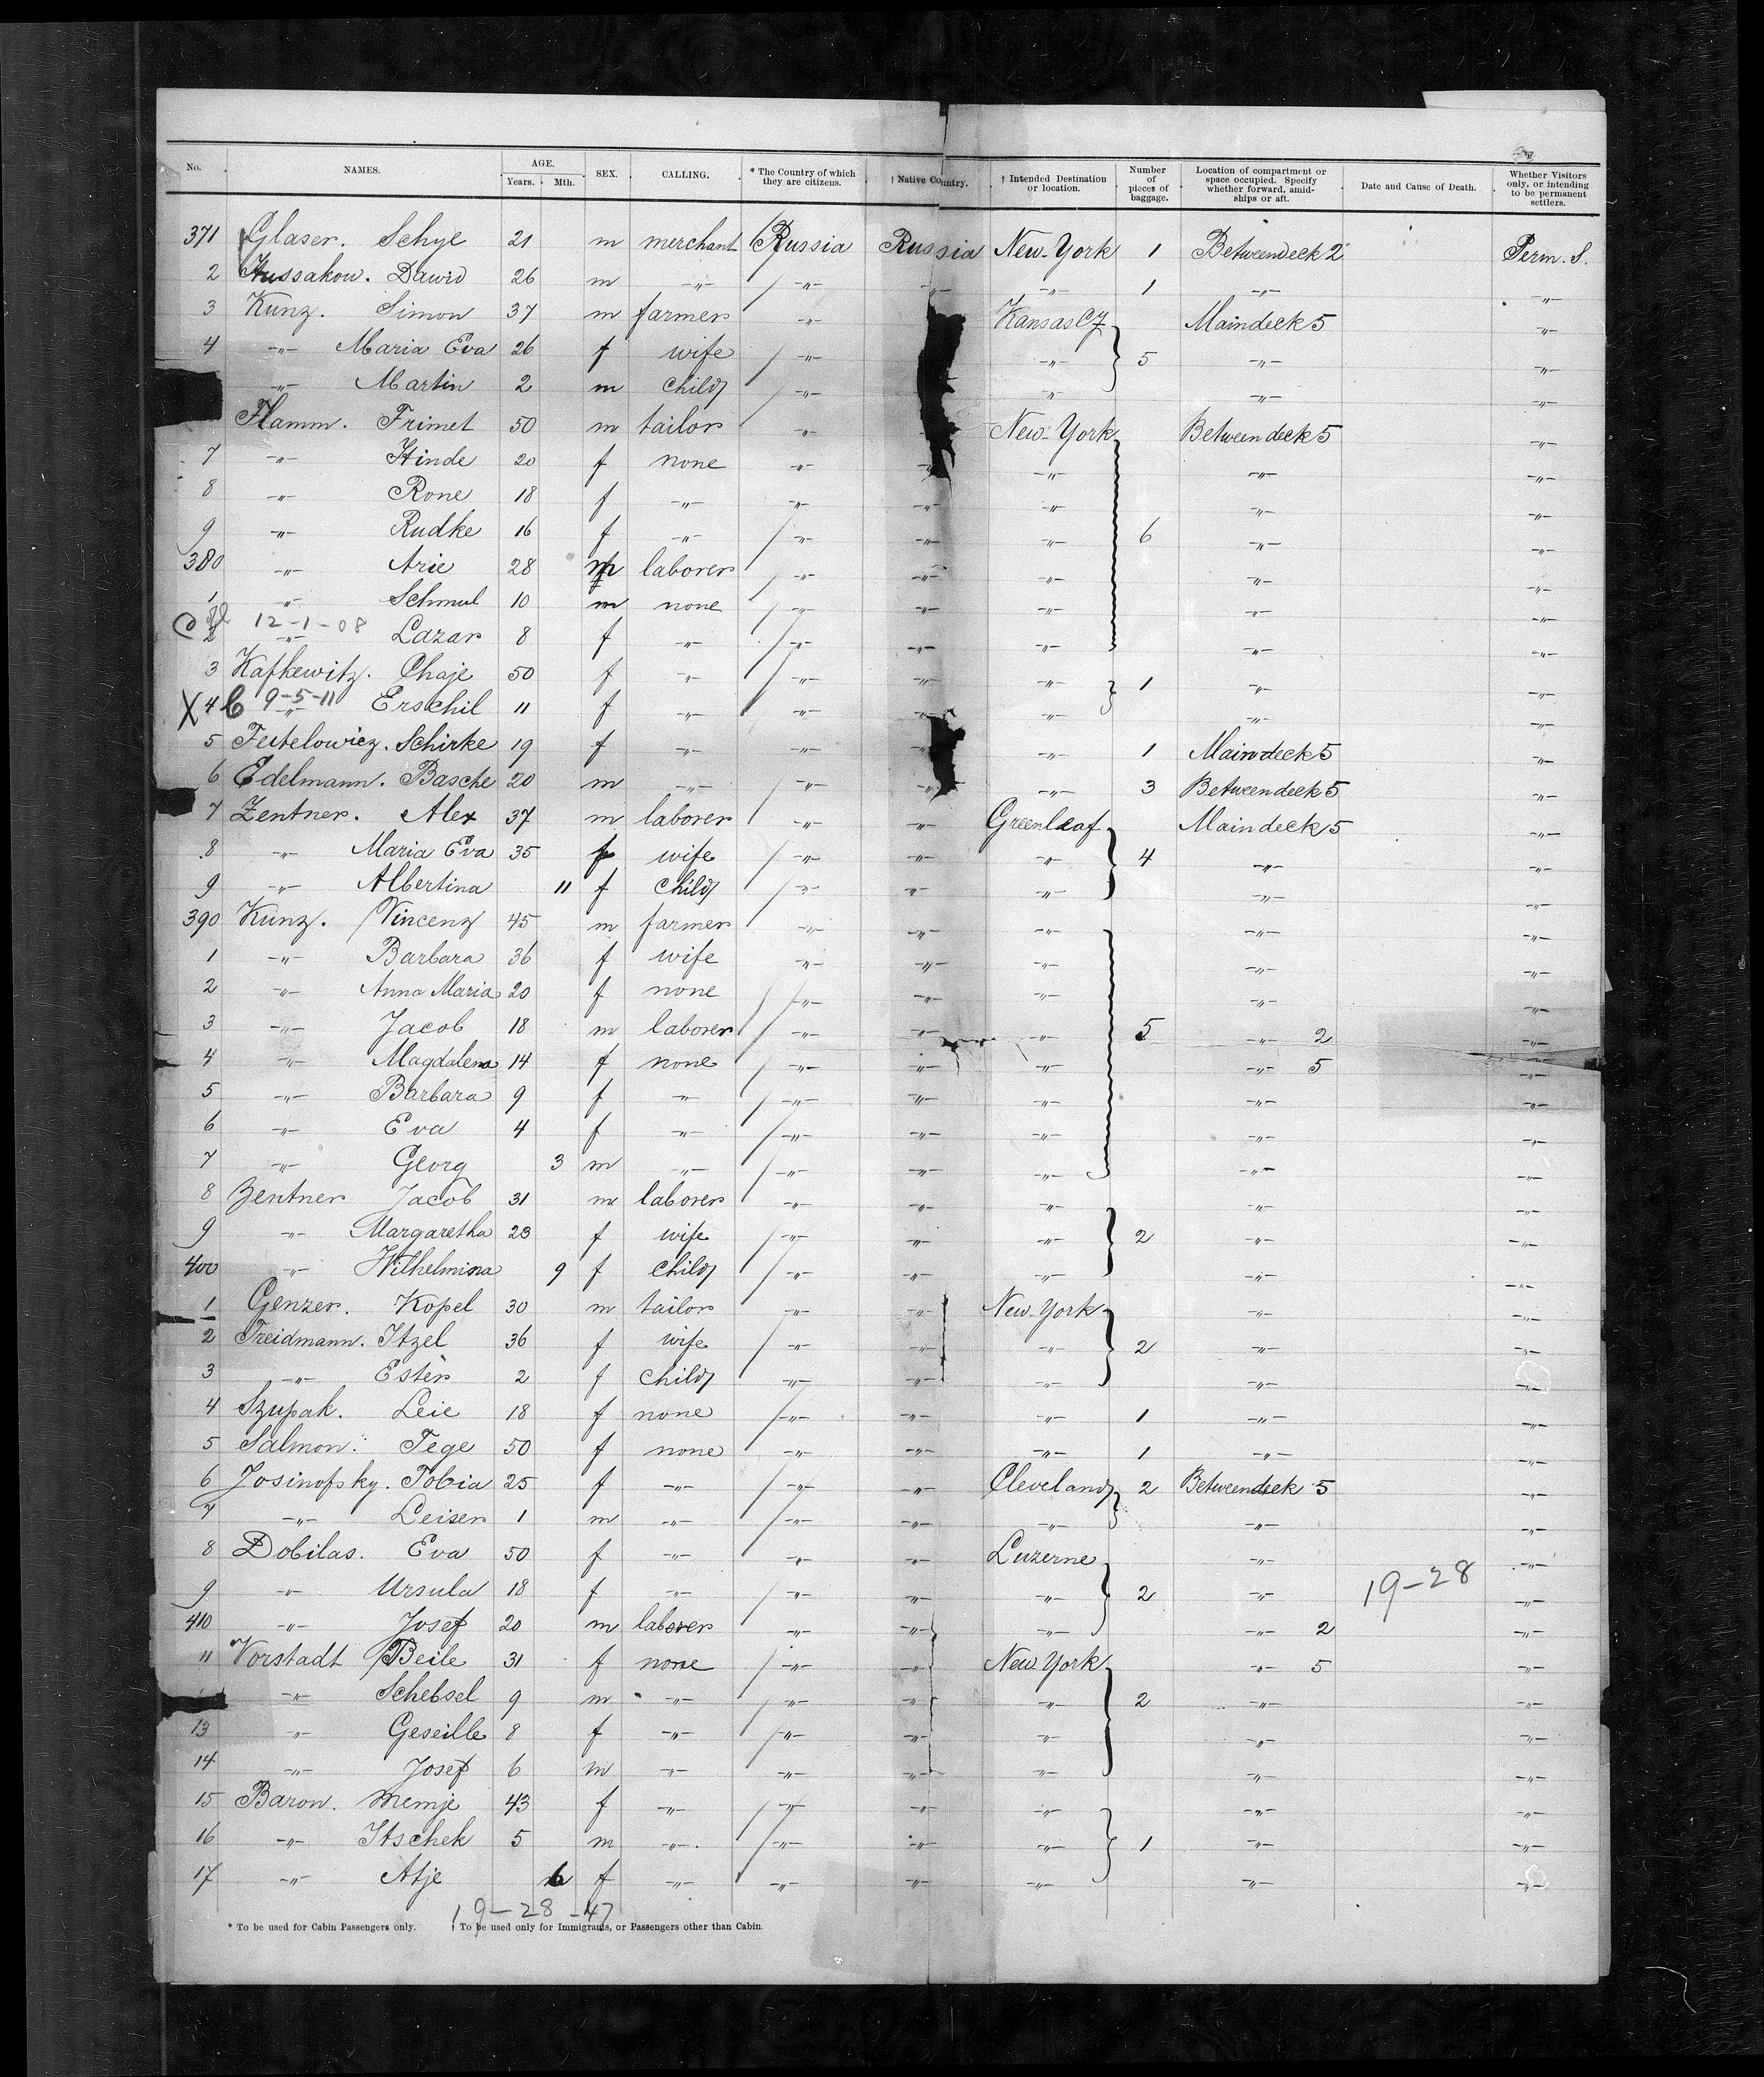 No. NAMES. AGE. Years. Mth. SEX. CALLING. * The Country of which they are citizens. † Native Country. † Intended Destination or location. Number of pieces of baggage. Location of compartment or space occupied. Specify whether forward, amidships or aft. Date and Cause of Death. Whether Visitors only, or intending to be permanent settlers.
371 Glaser. Schye 21 m merchant Russia Russia New-York 1 Betweendeck 2 Perm. S.
2 Hussakow. Dawid 26 m -"- -"- -"- -"- 1 -"- -"-
3 Kunz. Simon 37 m farmer -"- Kansas Maindeck 5 -"-
4 -"- Maria Eva 26 f wife -"- -"- 5 -"- -"-
-"- Martin 2 m child -"- -"- -"- -"-
Flamm. Frimet 50 m tailor -"- New-York Betweendeck 5 -"-
7 -"- Hinde 20 f none -"- -"- -"- -"- -"-
8 -"- Rone 18 f -"- -"- -"- -"- -"- -"-
9 -"- Rudke 16 f -"- -"- -"- -"- 6 -"- -"-
380 -"- Arie 28 m laborer -"- -"- -"- -"- -"-
1 -"- Schmul 10 m none -"- -"- -"- -"- -"-
12-1-08
2 -"- Lazar 8 f -"- -"- -"- -"- -"- -"-
3 Kafkewitz. Chaje 50 f -"- -"- -"- -"- 1 -"- -"-
X 4 C 9-5-11 -"- Erschil 11 f -"- -"- -"- -"- -"- -"-
5 Feitelowicz. Schirke 19 f -"- -"- -"- -"- 1 Maindeck 5 -"-
6 Edelmann. Basche 20 m -"- -"- -"- -"- 3 Betweendeck 5 -"-
7 Zentner. Alex 37 m laborer -"- -"- Greenleaf Maindeck 5 -"-
8 -"- Maria Eva 35 f wife -"- -"- -"- 4 -"- -"-
9 -"- Albertina 11 f child -"- -"- -"- -"- -"-
390 Kunz. Vincenz 45 m farmer -"- -"- -"- -"- -"-
1 -"- Barbara 36 f wife -"- -"- -"- -"- -"-
2 -"- Anna Maria 20 f none -"- -"- -"- -"- -"-
3 -"- Jacob 18 m laborer -"- -"- -"- 5 -"- 2 -"-
4 -"- Magdalena 14 f none -"- -"- -"- -"- 5 -"-
5 -"- Barbara 9 f -"- -"- -"- -"- -"- -"-
6 -"- Eva 4 f -"- -"- -"- -"- -"- -"-
7 -"- Georg 3 m -"- -"- -"- -"- -"- -"-
8 Zentner Jacob 31 m laborer -"- -"- -"- -"- -"-
9 -"- Margaretha 23 f wife -"- -"- -"- 2 -"- -"-
400 -"- Wilhelmina 9 f child -"- -"- -"- -"- -"-
1 Genzer. Kopel 30 m tailor -"- -"- New-York -"- -"-
2 Freidmann. Itzel 36 f wife -"- -"- -"- 2 -"- -"-
3 -"- Ester 2 f child -"- -"- -"- -"- -"-
4 Szupak. Leie 18 f none -"- -"- -"- 1 -"- -"-
5 Salmon. Tege 50 f none -"- -"- -"- 1 -"- -"-
6 Josinofsky. Tobia 25 f -"- -"- -"- Cleveland 2 Betweendeck 5 -"-
7 -"- Leiser 1 m -"- -"- -"- -"- -"- -"-
8 Dobilas. Eva 50 f -"- -"- -"- Luzerne -"- -"-
9 -"- Ursula 18 f -"- -"- -"- -"- 2 -"- 19-28 -"-
410 -"- Josef 20 m laborer -"- -"- -"- -"- 2 -"-
11 Vorstadt Beile 31 f none -"- -"- New York -"- 5 -"-
-"- Schebsel 9 m -"- -"- -"- -"- 2 -"- -"-
13 -"- Geseille 8 f -"- -"- -"- -"- -"- -"-
14 -"- Josef 6 m -"- -"- -"- -"- -"- -"-
15 Baron. Memje 43 f -"- -"- -"- -"- -"- -"-
16 -"- Itschek 5 m -"- -"- -"- -"- 1 -"- -"-
17 -"- Atje 6 f -"- -"- -"- -"- -"- -"-
19-28-47
* To be used for Cabin Passengers only. † To be used only for Immigrants, or Passengers other than Cabin.